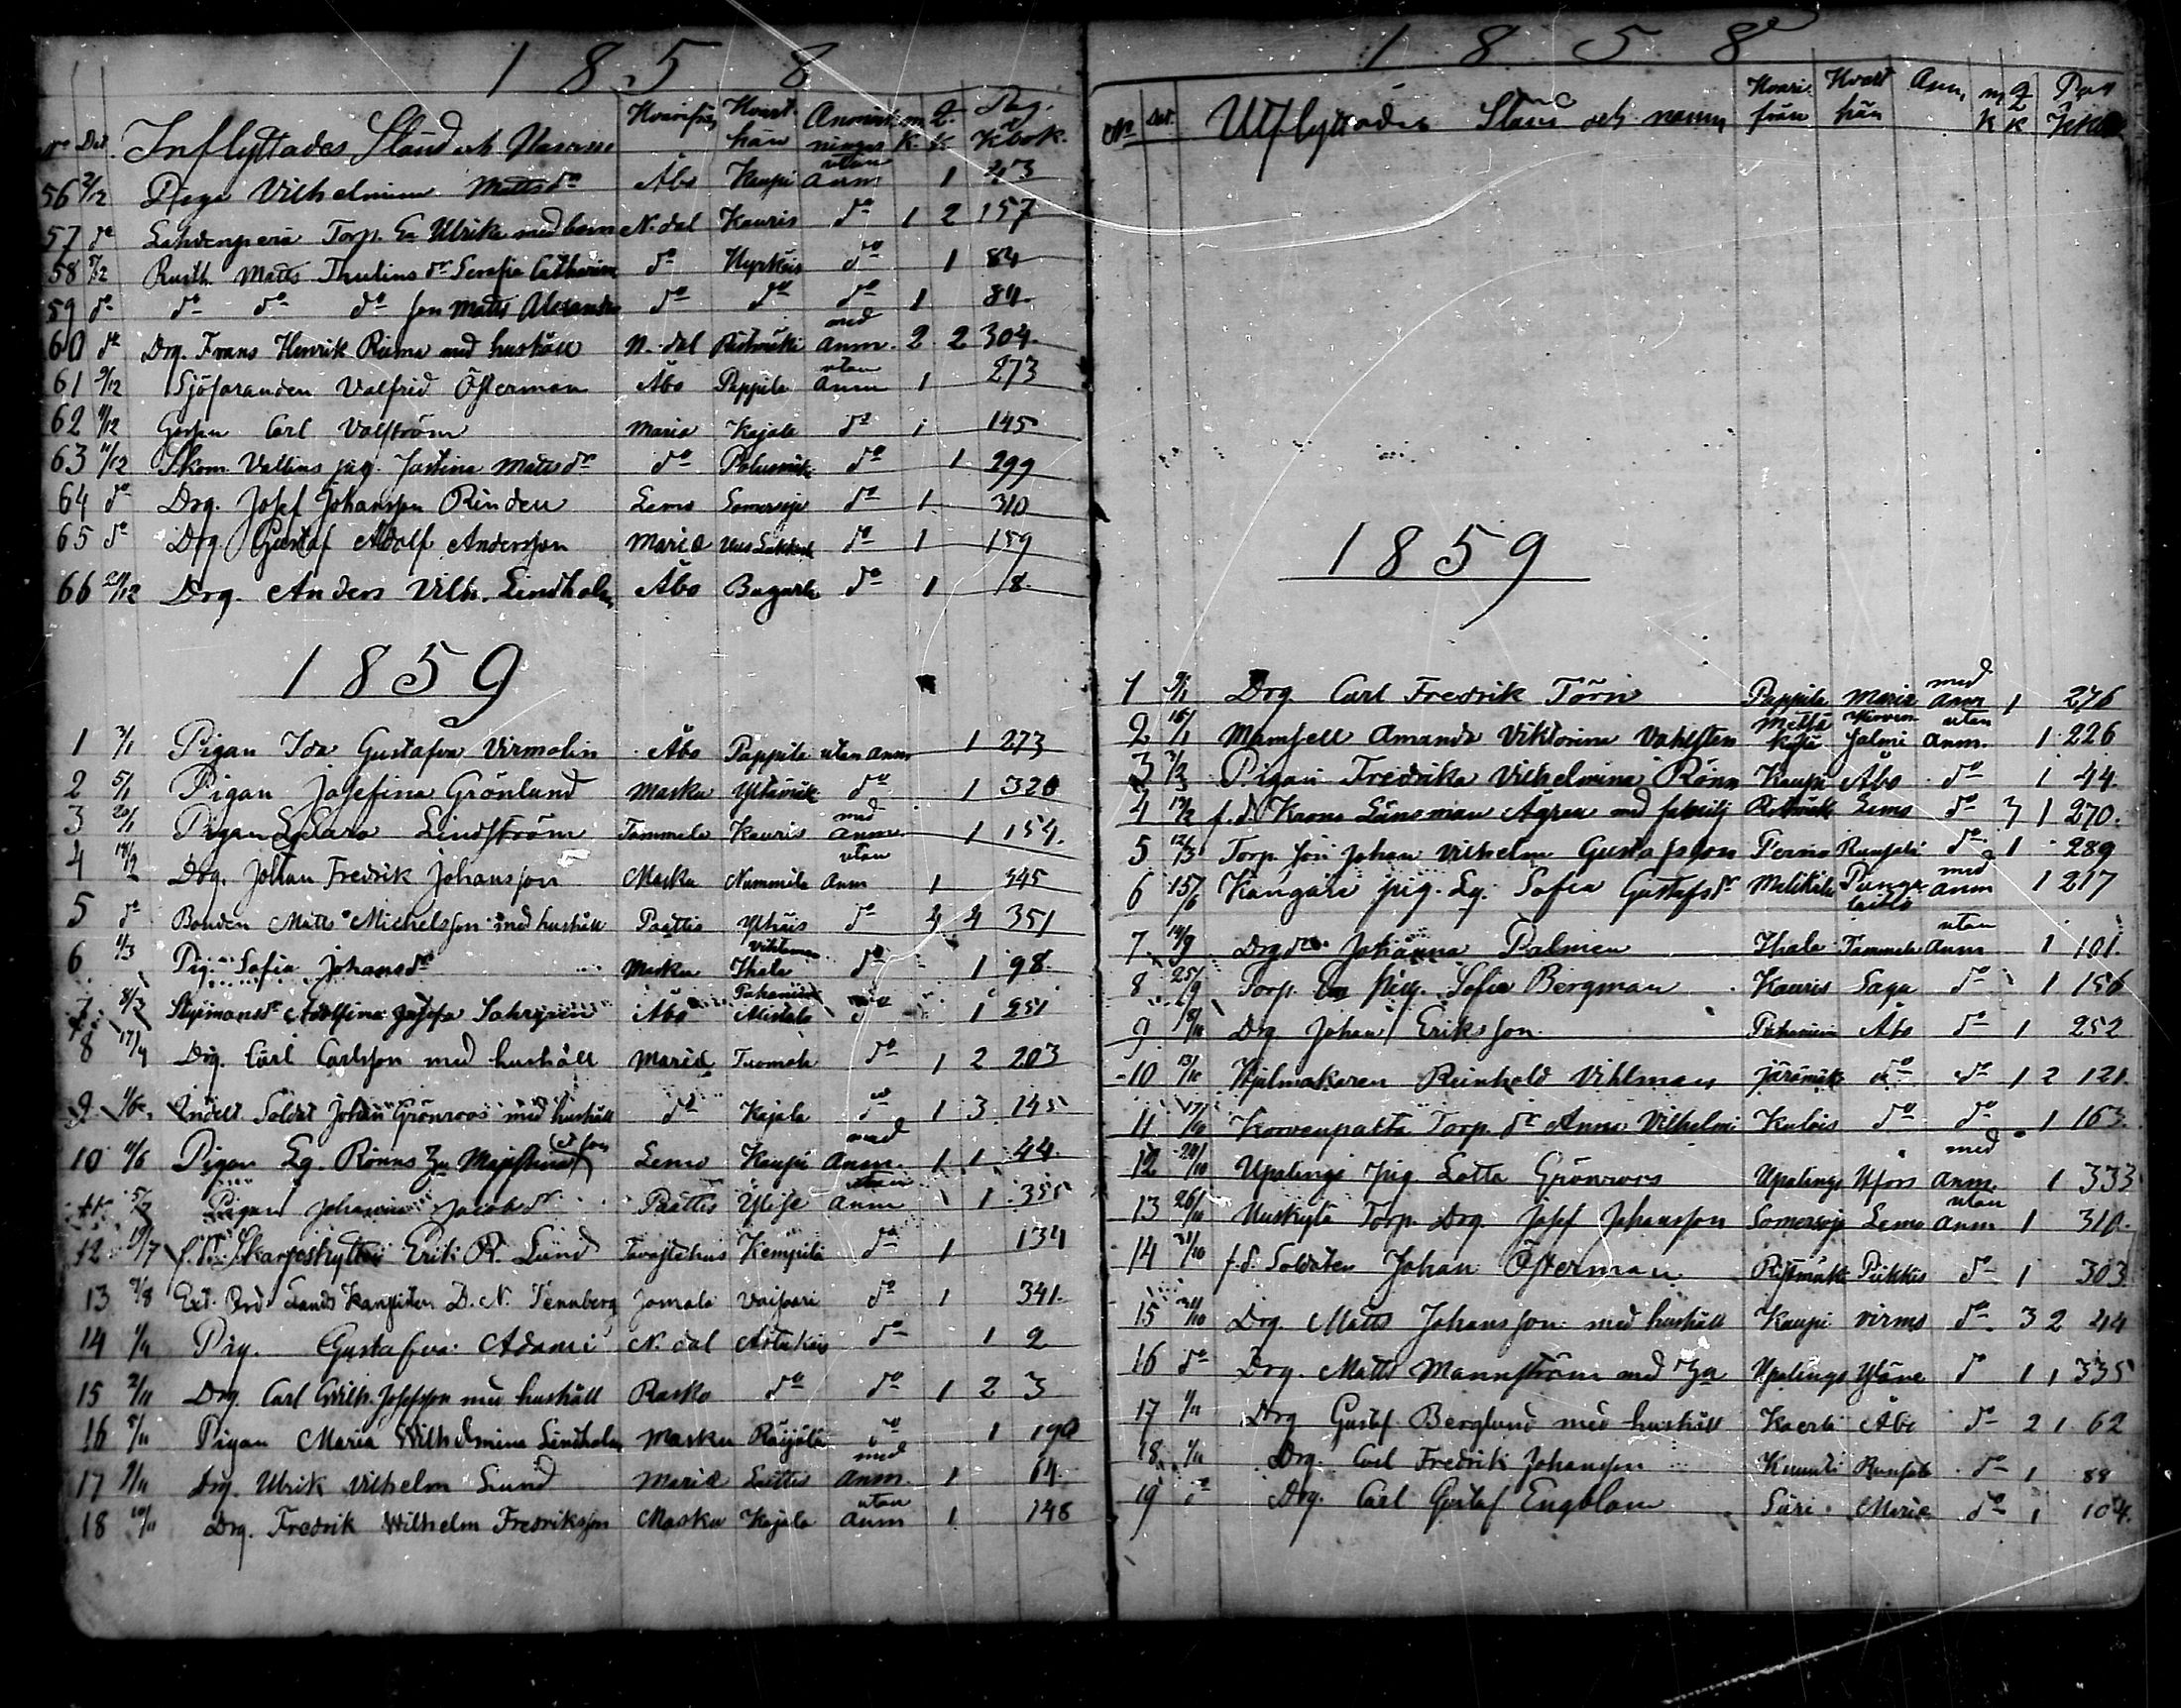 1858
No Dat. Inflyttades Stånd och Namn Hvarifrån Hvart hän Anmärkningar m. K. q. K. Pag. i Kbok.
56 2/12 Piga Vilhelmina Mattsdr Åbo Kaupi utan anm 1 43
57 do Torp. Ea Ulrika med barn N. dal Kauris do 1 2 157
58 5/12 Rusth. Matts Thulins dr Serafia Catharina do Hyrköis do 1 84
59 do do do do son Matts Alexander do do do 1 84
60 do Drg. Frans Henrik Ruma med hushåll N. dal Ristimäki med anm. 2 2 304
61 9/12 Sjöfaranden Valfrid Österman Åbo Pappila utan anm 1 273
62 11/12 Gossen Carl Valström Maria Kajala do 1 145
63 11/12 Skom. Vallins pig. Justina Mattsdr do do 1 299
64 do Drg. Josef Johansson Rinden Lemo Somersoja do 1 310
65 do Drg. Gustaf Adolf Andersson Mariæ do 1 159
66 29/12 Drg. Anders Vilh. Lindholm Åbo do 1 18
1859
1 3/1 Pigan Ida Gustafva Virmolin Åbo Pappila utan anm 1 273
2 5/1 Pigan Josefina Grönlund Masku do 1 320
3 20/1 Pigan Lindström Tammela Kauris med anm. 1 154.
4 14/2 Drg. Johan Fredrik Johansson Masku Nummila utan anm 1 345
5 do Bonden Matts Michelsson med hushåll Paattis do 4 4 351
6 1/3 Pig. Sofia Johansdr Masku Ihala do 1 98
7 8/3 Adolfina Josefa Åbo do 1 251
8 17/4 Drg. Carl Carlsson med hushåll Mariæ Tuomola do 1 2 203
9 1/6 Indelt Soldat Johan Grönroos med hushåll do Kajala do 1 3 145
10 11/6 Pigan Eg. Rönns med anm. Lemo Kaupi 1 1 44
11 5/7 Pigan Johanna Jacobsdr Paattis utan anm 1 355
12 19/7 f. d. Skarpskytten Erik R. Lund Tavastehus Kempilä do 1 134
13 9/8 Ext. Ord. Lands Kanslisten D. N. Tennberg Jomala do 1 341.
14 1/11 Pig. Gustafva Adami N. dal do 1 2
15 2/11 Drg. Carl Wilh. Josefsson med hushåll Rasko do do 1 2 3
16 5/11 Pigan Maria Wilhelmina Lindholm Masku Räijälä do 1 190
17 9/11 Drg. Ulrik Vilhelm Lund Mariæ Lattis med anm. 1 64
18 10/11 Drg. Fredrik Wilhelm Fredriksson Masku Kajala utan anm 1 148
1858
No Dat. Utflyttades Stånd och namn Hvarifrån Hvart hän Anm. m K q K
1859
1 Drg Carl Fredrik Törn Pappila Maria med anm 1 276
2 Mamsell Amanda Viktorina Vahlsten utan anm. 1 226
3 Pigan Fredrika Vilhelmina Rönn Kaupi Åbo do 1 44
4 f. d. Krono Länsman Ågren med familj Lemo do 3 1 270.
5 12/3 Torp. son Johan Vilhelm Gustafsson Perno Runsala do 1 289
6 15/6 Kangare pig. Eg. Sofia Gustafsdr med anm 1 217
7 14/9 Drg dr Johanna Palmen Ihala Tammela utan anm 1 101.
8 25/9 Torp. pig. Sofia Bergman Kauris Sagu do 1 156
9 Drg Johan Eriksson Åbo do 1 252
10 13/10 Hjulmakaren Reinhold Vihlman do do 1 2 121.
11 17/10 Torp. dr Anna Vilhelmi do do 1 163.
12 20/10 Upalinga pig. Lotta Grönroos Upalinga Hfors med anm. 1 333
13 26/10 Uuskylä Torp. Drg. Josef Johansson Somersoja Lemo utan anm 1 310.
14 31/10 f. d. Soldaten Johan Österman Ristimäki Piikkis do 1 303
15 31/10 Drg. Matts Johansson med hushåll Kaupi Virmo do 3 2 44
16 do Drg. Matts Mannström med Upalinga Yläne do 1 1 335
17 1/11 Drg Gustaf Berglund med hushåll Kaerla Åbo do 2 1 62
18 1/11 Drg. Carl Fredrik Johansson Runsala do 1 88
19 do Drg. Carl Gustaf Engblom Maria do 1 104.